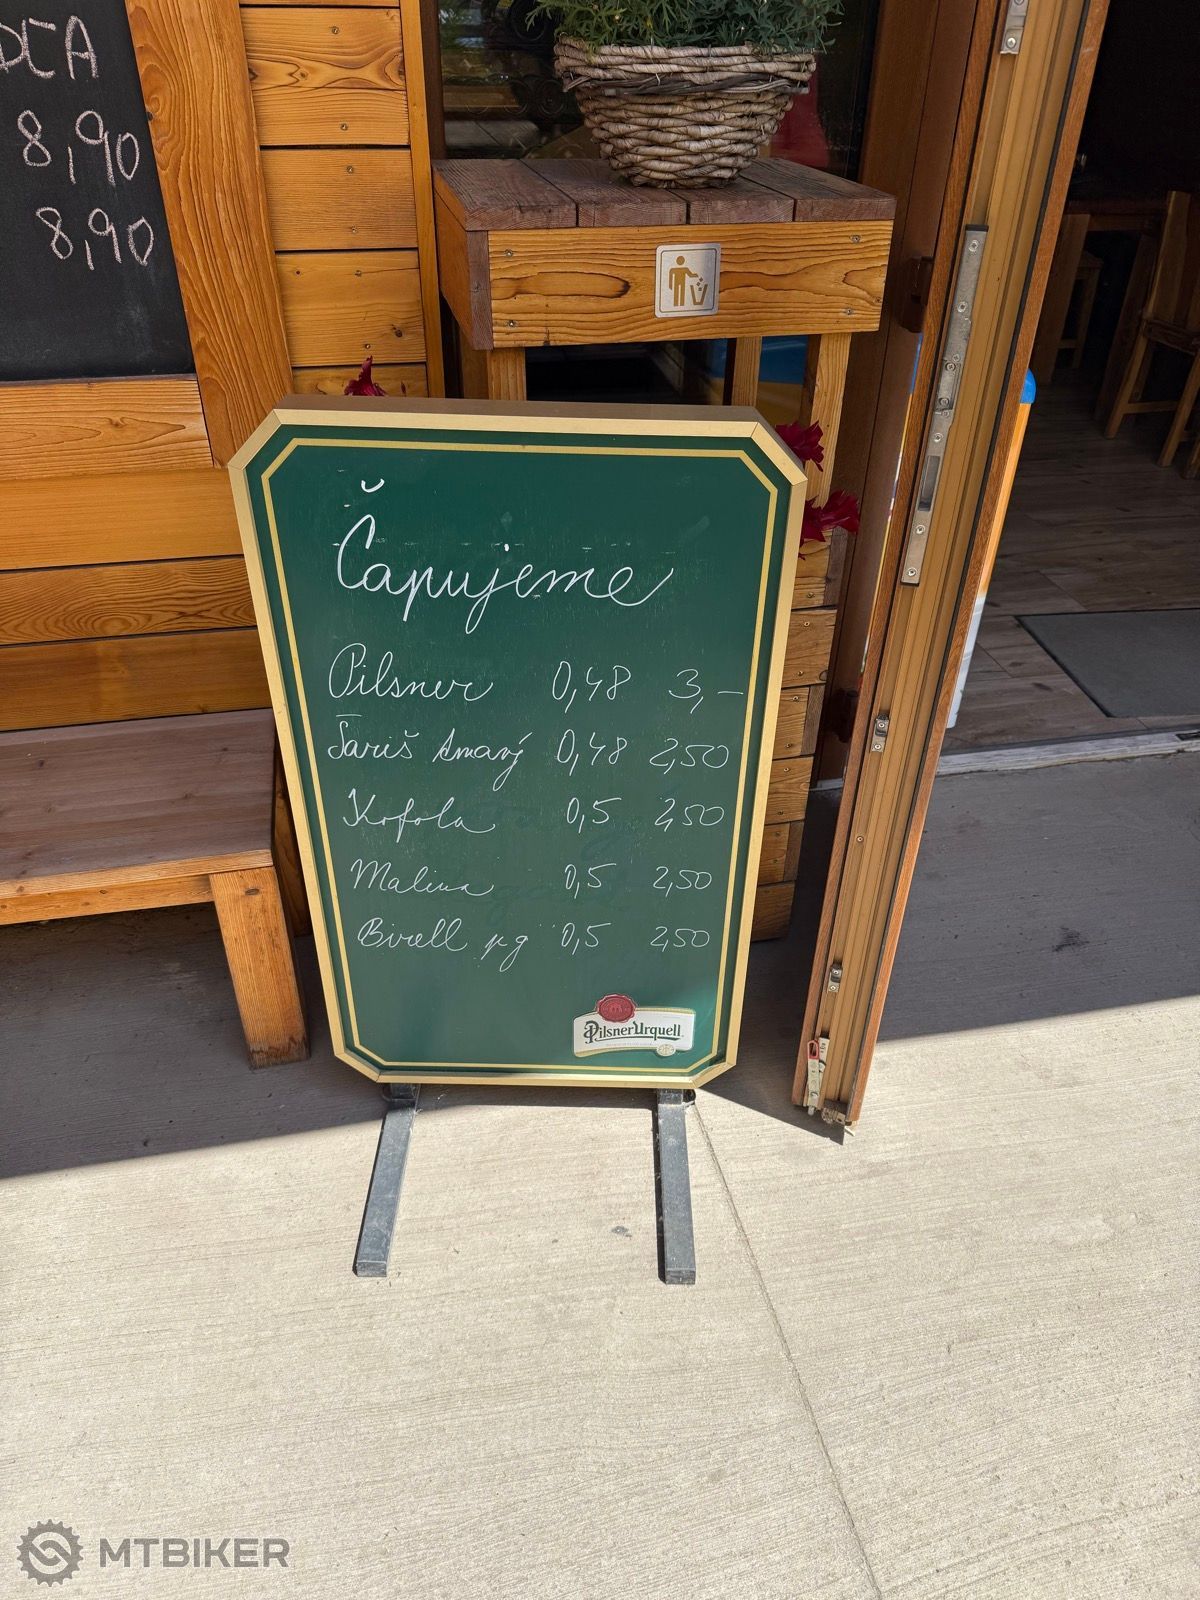 8,90
8,90
Čapujeme
Pilsner 0,48 3,-
Šariš tmavý 0,48 2,50
Kofola 0,5 2,50
Malina 0,5 2,50
Birell pg 0,5 2,50
Pilsner Urquell
MTBIKER